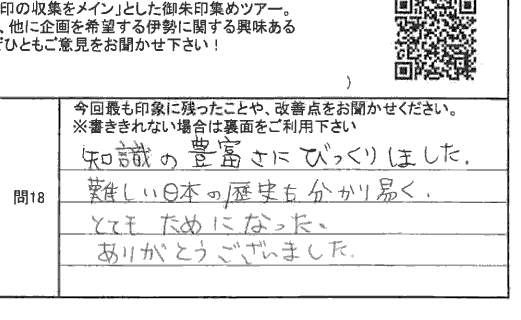 印の収集をメイン」とした御朱印集めツアー。
、他に企画を希望する伊勢に関する興味ある
ぜひともご意見をお聞かせ下さい！
）
今回最も印象に残ったことや、改善点をお聞かせください。
※書ききれない場合は裏面をご利用下さい
問18
知識の豊富さにびっくりしました。
難しい日本の歴史も分かり易く、
とても ためになった。
ありがとうございました。